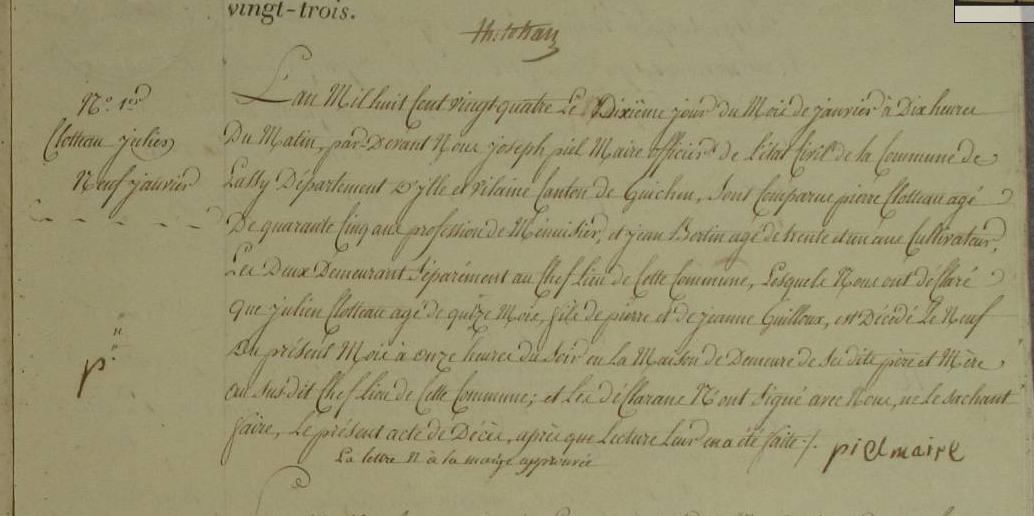 vingt-trois.
N.o 1er
Clotteau julien
Neuf janvier
L'an Mil huit Cent vingt quatre Le Dixième jour du Mois de janvier à Dix heures
Du Matin, par Devant Nous joseph piel Maire officier de l'état Civil de la Commune de
Lassy Département d'ylle et vilaine Canton de Guichen, Sont Comparus pierre Clotteau agé
De quarante Cinq ans profession de Menuisier, et jean Bertin agé de trente et un ans Cultivateur,
Les Deux Demeurant Séparément au Chef lieu de Cette Commune, Lesquels Nous ont déClaré
que julien Clotteau agé de quinze Mois, fils de pierre et de jeanne Guilloux, est Décédé Le Neuf
Du présent Mois à onze heures du Soir en La Maison de Demeure de Ses dits père et Mère
au Susdit Chef lieu de Cette Commune; et Les déClarans N'ont Signé avec Nous, ne le Sachant
faire, Le présent acte de Décès, après que Lecture Leur en a été faite ./.
piel maire
La lettre n à la marge approuvée
n
p.